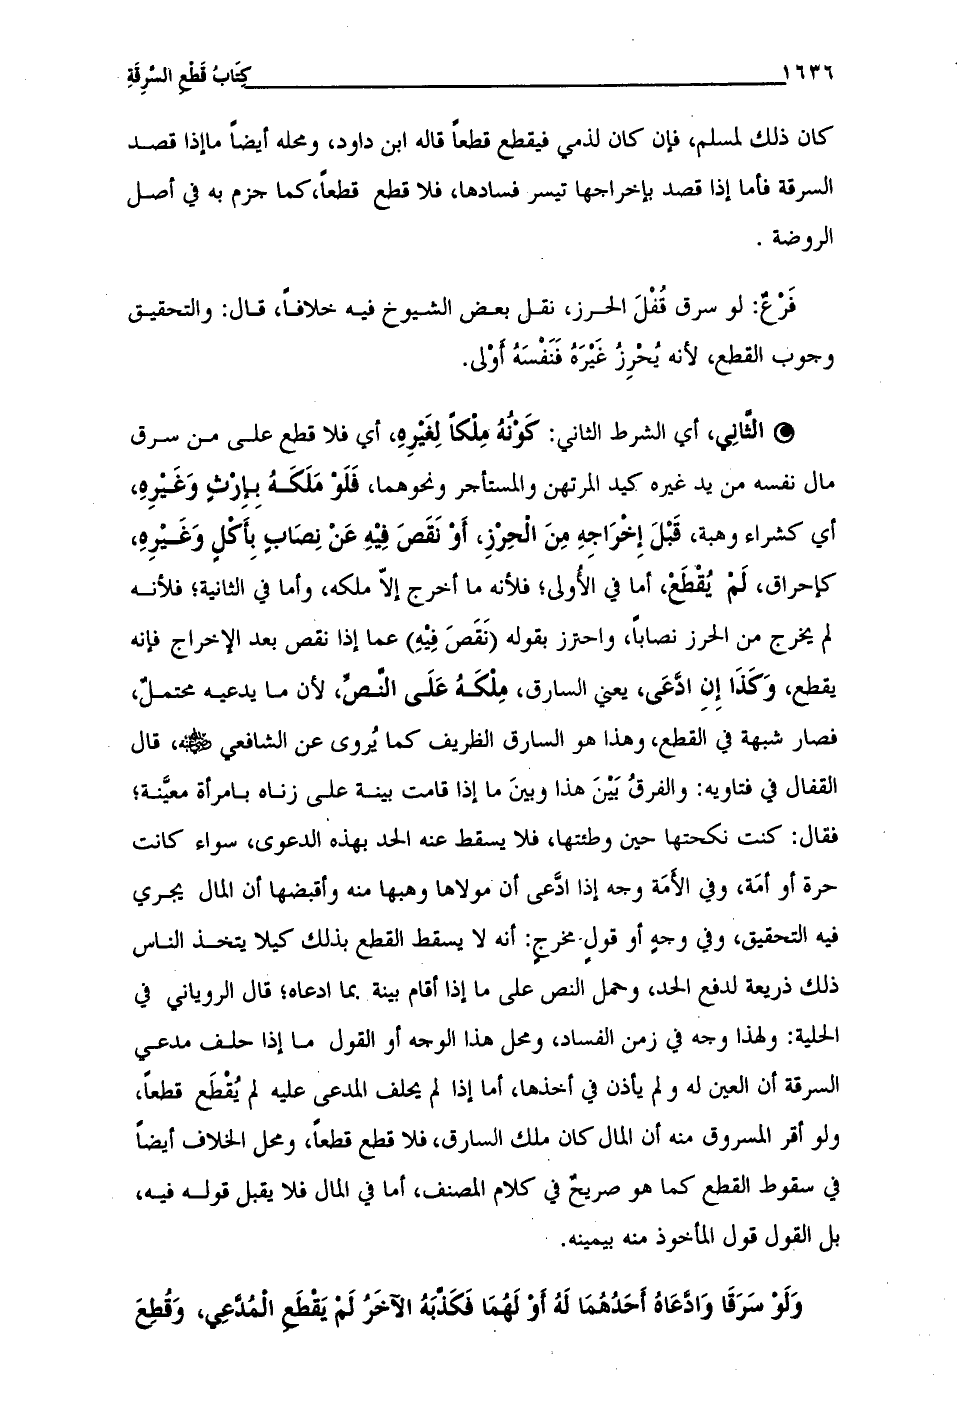 ١٦٣٦ كِتَابُ قَطْعِ السَّرِقَةِ
كان ذلك لمسلم، فإن كان لذمي فيقطع قطعاً قاله ابن داود، ومحله أيضاً ماإذا قصد
السرقة فأما إذا قصد بإخراجها تيسر فسادها، فلا قطع قطعاً، كما جزم به في أصل
الروضة .
فَرْعٌ: لو سرق قُفْلَ الحرز، نقل بعض الشيوخ فيه خلافاً، قال: والتحقيق
وجوب القطع، لأنه يُحْرِزُ غَيْرَهُ فَنَفْسَهُ أَوْلى.
الثَّانِي، أي الشرط الثاني: كَوْنُهُ مِلْكاً لِغَيْرِهِ، أي فلا قطع على من سرق
مال نفسه من يد غيره كيد المرتهن والمستأجر ونحوهما، فَلَوْ مَلَكَهُ بِإِرْثٍ وَغَيْرِهِ،
أي كشراء وهبة، قَبْلَ إِخْرَاجِهِ مِنَ الْحِرْزِ، أَوْ نَقَصَ فِيْهِ عَنْ نِصَابٍ بِأَكْلٍ وَغَيْرِهِ،
كإحراق، لَمْ يُقْطَعْ، أما في الأُولى؛ فلأنه ما أخرج إلاّ ملكه، وأما في الثانية؛ فلأنه
لم يخرج من الحرز نصاباً، واحترز بقوله (نَقَصَ فِيْهِ) عما إذا نقص بعد الإخراج فإنه
يقطع، وَكَذَا إِنِ ادَّعَى، يعني السارق، مِلْكَهُ عَلَى النَّصِّ، لأن ما يدعيه محتملٌ،
فصار شبهة في القطع، وهذا هو السارق الظريف كما يُروى عن الشافعي رضي الله عنه، قال
القفال في فتاويه: والفرقُ بَيْنَ هذا وبينَ ما إذا قامت بينة على زناه بامرأة معيَّنة؛
فقال: كنت نكحتها حين وطئتها، فلا يسقط عنه الحد بهذه الدعوى، سواء كانت
حرة أو أمَة، وفي الأَمَة وجه إذا ادَّعى أن مولاها وهبها منه وأقبضها أن المال يجري
فيه التحقيق، وفي وجهٍ أو قولٍ مخرجٍ: أنه لا يسقط القطع بذلك كيلا يتخذ الناس
ذلك ذريعة لدفع الحد، وحمل النص على ما إذا أقام بينة بما ادعاه؛ قال الروياني في
الحلية: ولهذا وجه في زمن الفساد، ومحل هذا الوجه أو القول ما إذا حلف مدعي
السرقة أن العين له و لم يأذن في أخذها، أما إذا لم يحلف المدعى عليه لم يُقْطَع قطعاً،
ولو أقر المسروق منه أن المال كان ملك السارق، فلا قطع قطعاً، ومحل الخلاف أيضاً
في سقوط القطع كما هو صريحٌ في كلام المصنف، أما في المال فلا يقبل قوله فيه،
بل القول قول المأخوذ منه بيمينه.
وَلَوْ سَرَقَا وَادَّعَاهُ أَحَدُهُمَا لَهُ أَوْ لَهُمَا فَكَذَّبَهُ الآخَرُ لَمْ يَقْطَعِ الْمُدَّعِي، وَقُطِعَ